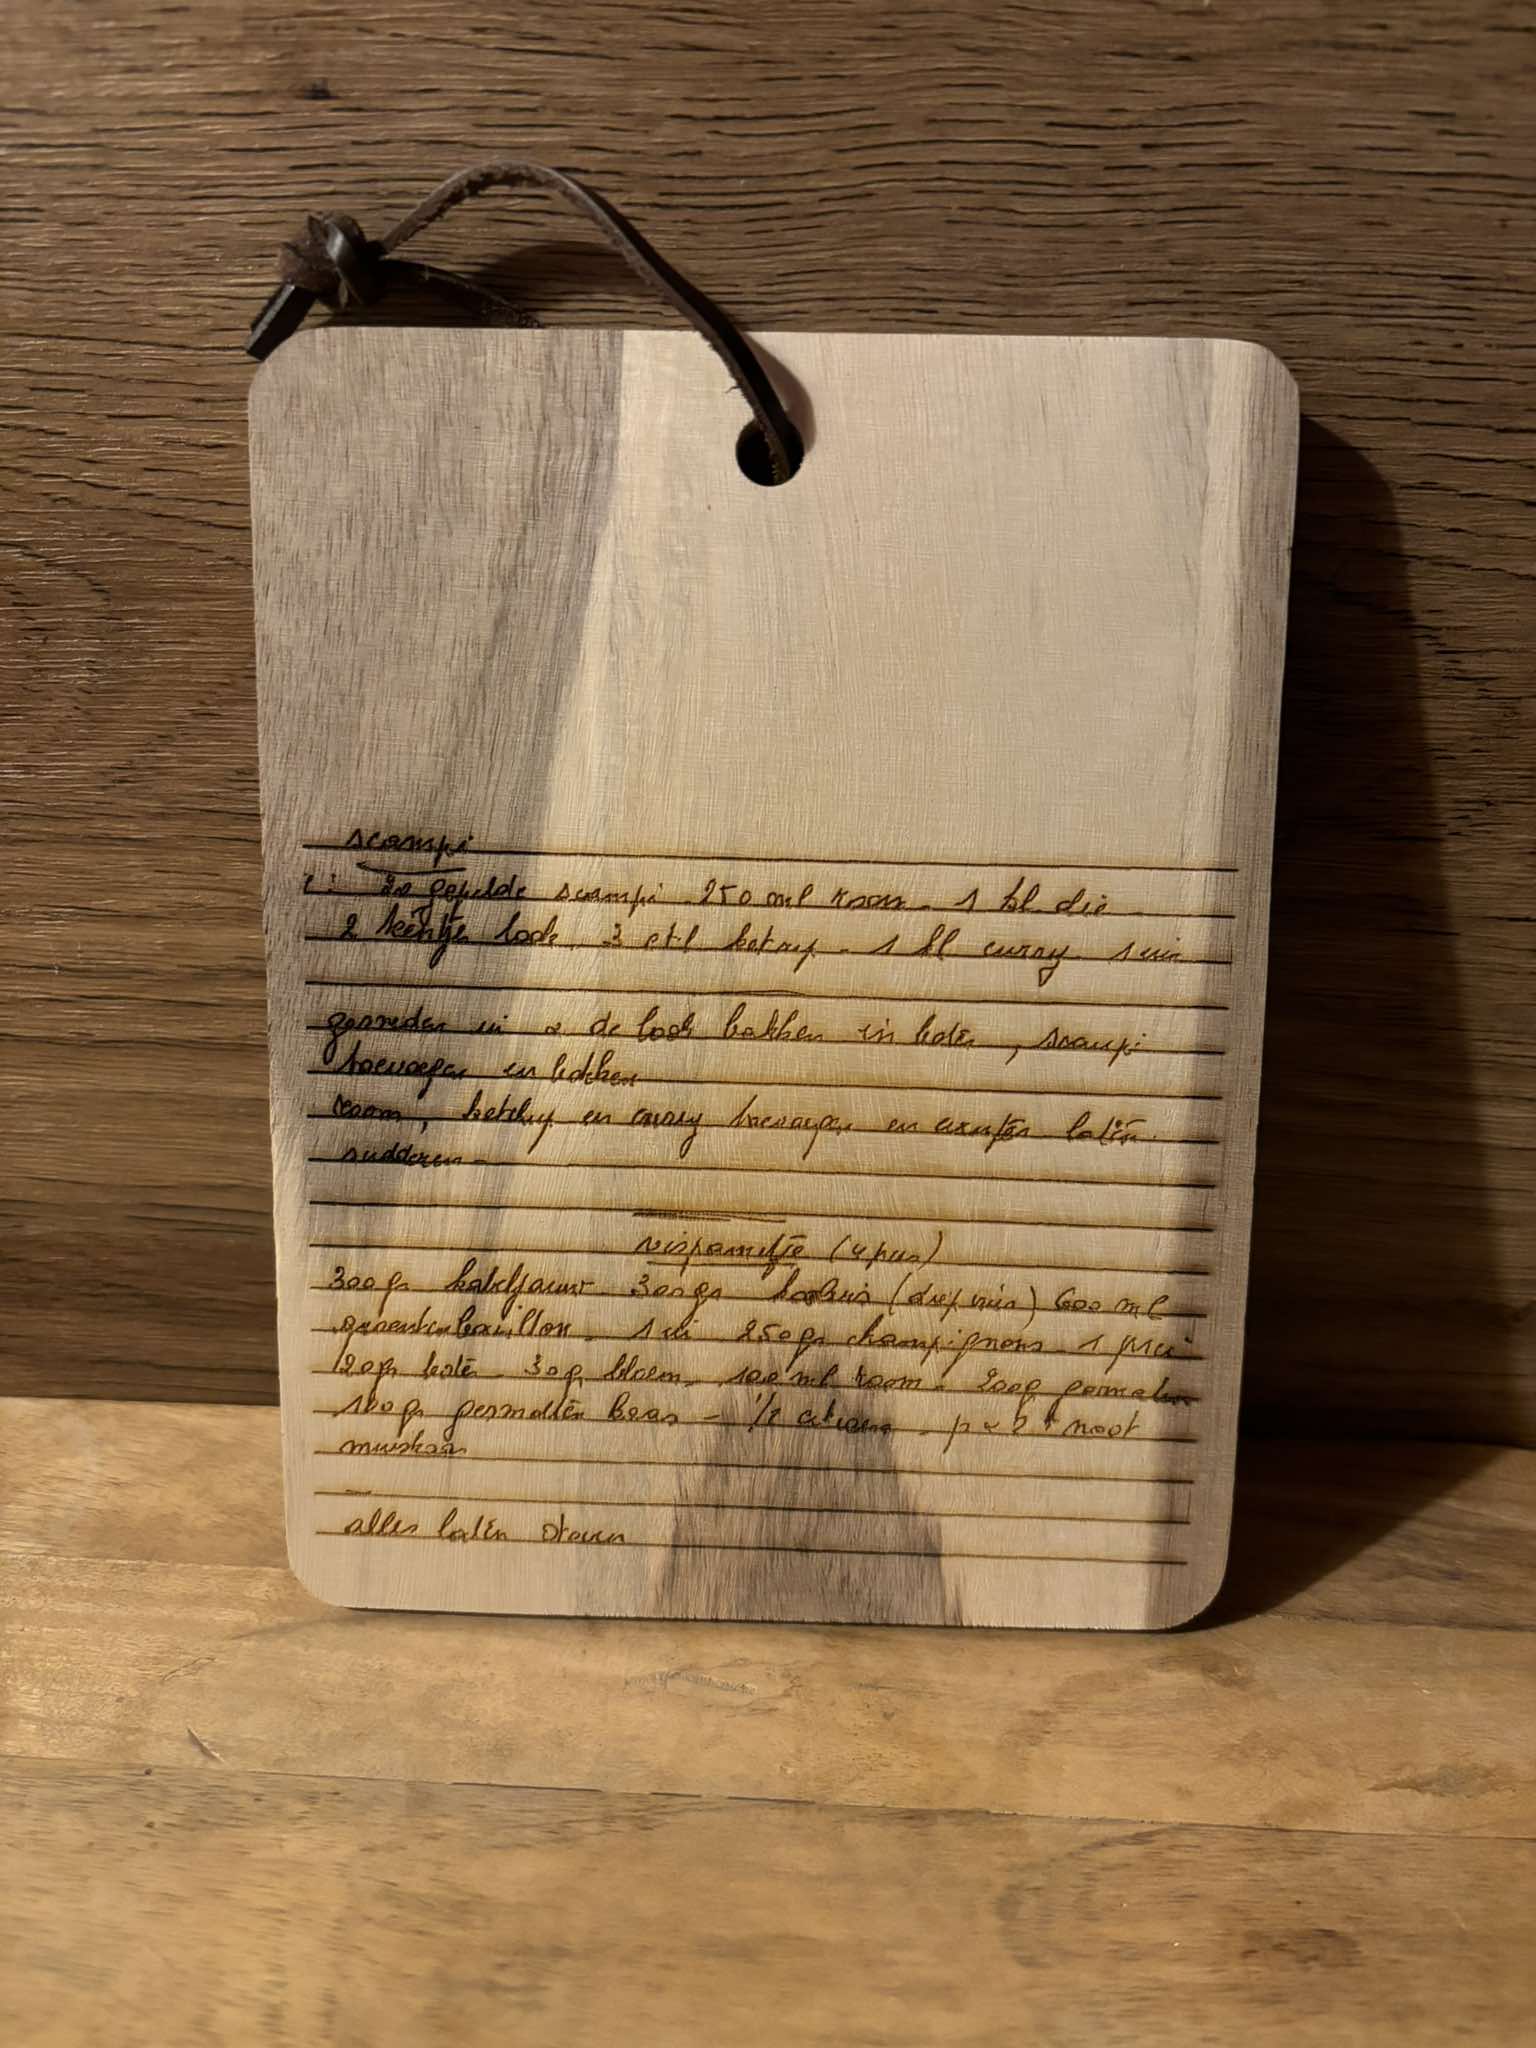 scampi
20 gepelde scampi - 250 ml room - 1 kl. olie -
2 teentjes look - 3 etl ketcup - 1 kl curry - 1 ui
gesneden ui & de look bakken in boter, scampi
toevoegen en bakken
room, ketchup en curry toevoegen en eventjes laten
sudderen -
vispannetje (4 pers)
300 gr kabeljauw - 300 gr koolvis (diepvries) 600 ml
groentenbouillon - 1 ui 250 gr champignons - 1 prei
20 gr boter - 30 g bloem - 100 ml room - 200 g garnalen
100 gr gemalen kaas - 1/2 citroen - p & z + noot
muskaat
alles laten stoven